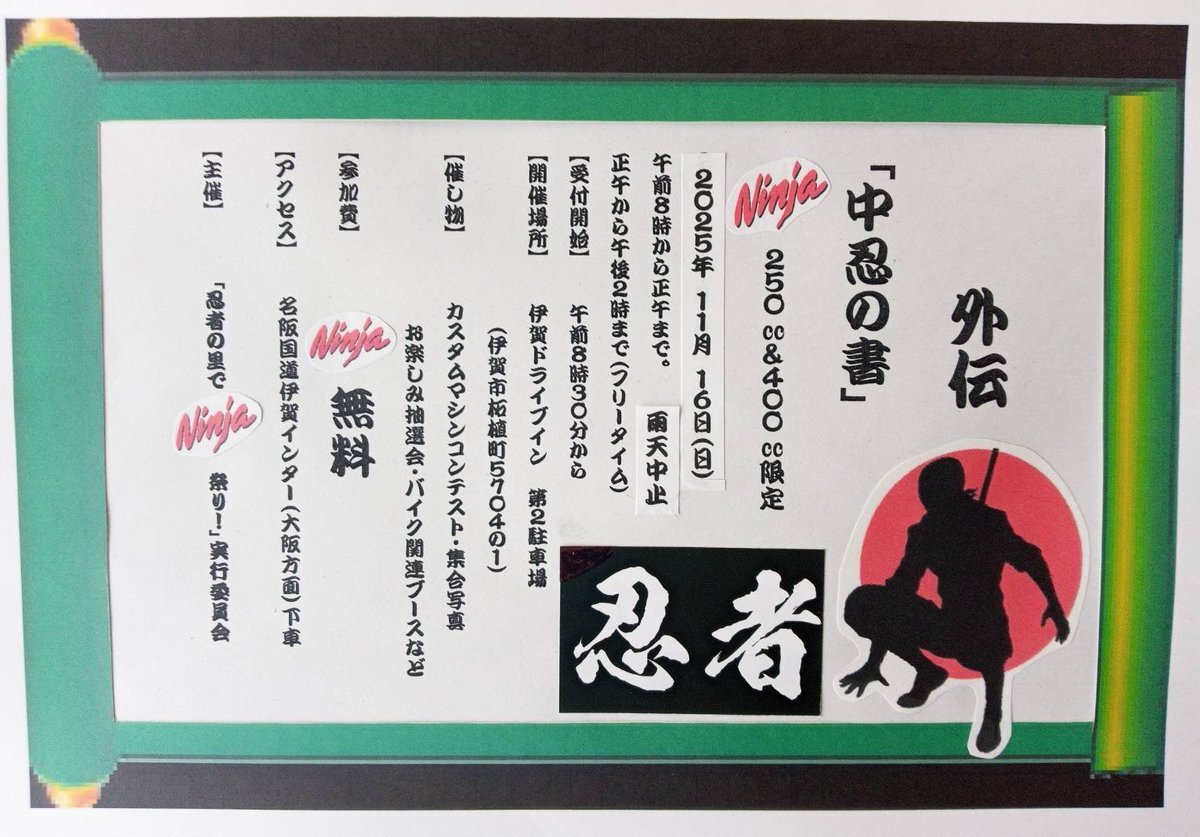 外伝
「中忍の書」
Ninja 250cc&400cc限定
2025年 11月 16日(日)
午前8時から正午まで。 雨天中止
正午から午後2時まで(フリータイム)
【受付開始】 午前8時30分から
【開催場所】 伊賀ドライブイン 第2駐車場
(伊賀市柘植町5704の1)
【催し物】 カスタムマシンコンテスト・集合写真
お楽しみ抽選会・バイク関連ブースなど
【参加費】 Ninja 無料
【アクセス】 名阪国道伊賀インター(大阪方面)下車
【主催】 「忍者の里で Ninja 祭り!」実行委員会
忍者